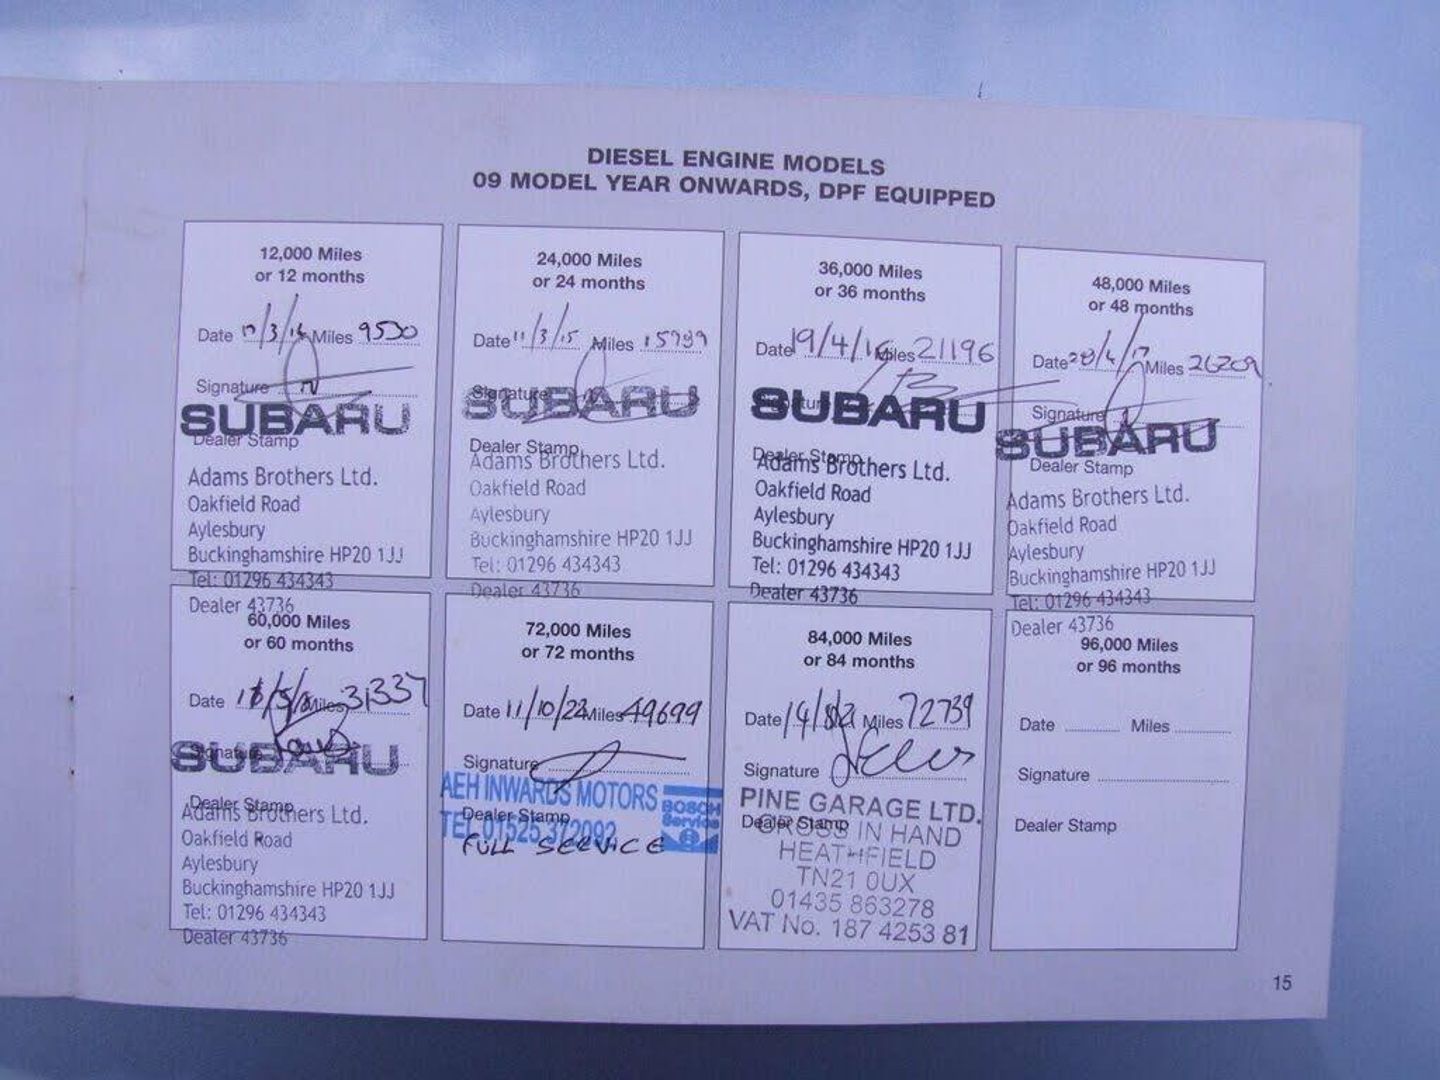 DIESEL ENGINE MODELS
09 MODEL YEAR ONWARDS, DPF EQUIPPED
12,000 Miles
or 12 months
Date /3/14 Miles 9550
Signature
SUBARU
Dealer Stamp
Adams Brothers Ltd.
Oakfield Road
Aylesbury
Buckinghamshire HP20 1JJ
Tel: 01296 434343
Dealer 43736
24,000 Miles
or 24 months
Date 11/3/15 Miles
Signature
SUBARU
Dealer Stamp
Adams Brothers Ltd.
Oakfield Road
Aylesbury
Buckinghamshire HP20 1JJ
Tel: 01296 434343
Dealer 43736
36,000 Miles
or 36 months
Date 19/4/16 Miles 21196
Signature
SUBARU
Dealer Stamp
Adams Brothers Ltd.
Oakfield Road
Aylesbury
Buckinghamshire HP20 1JJ
Tel: 01296 434343
Dealer 43736
48,000 Miles
or 48 months
Date 28/4/17 Miles 26209
Signature
SUBARU
Dealer Stamp
Adams Brothers Ltd.
Oakfield Road
Aylesbury
Buckinghamshire HP20 1JJ
Tel: 01296 434343
Dealer 43736
60,000 Miles
or 60 months
Date Miles 31337
Signature
SUBARU
Dealer Stamp
Adams Brothers Ltd.
Oakfield Road
Aylesbury
Buckinghamshire HP20 1JJ
Tel: 01296 434343
Dealer 43736
72,000 Miles
or 72 months
Date 11/10/22 Miles 49699
Signature
AEH INWARDS MOTORS
BOSCH
Service
Dealer Stamp
TEL 01525 372092
FULL SERVICE
84,000 Miles
or 84 months
Date Miles 72739
Signature
PINE GARAGE LTD.
Dealer Stamp
CROSS IN HAND
HEATHFIELD
TN21 0UX
01435 863278
VAT No. 187 4253 81
96,000 Miles
or 96 months
Date Miles
Signature
Dealer Stamp
15